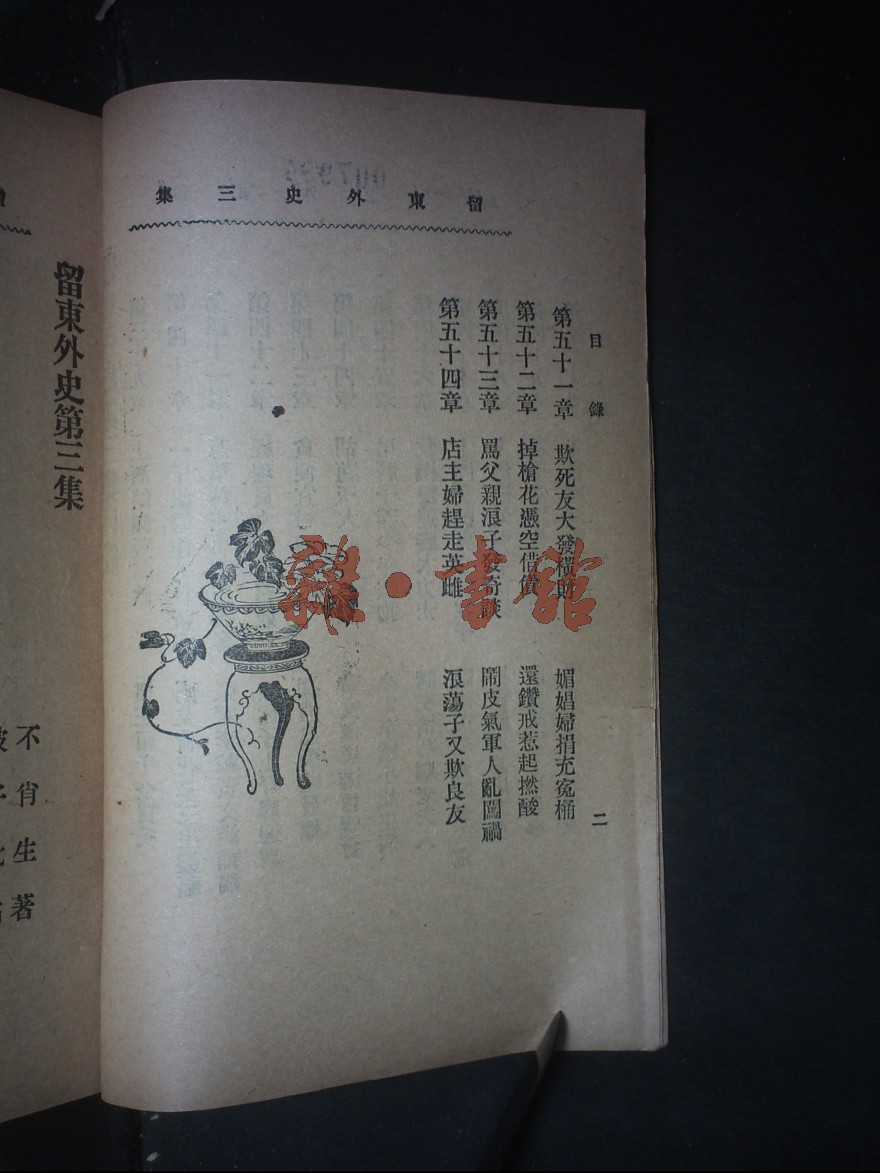 留東外史三集
目錄
第五十一章 欺死友大發橫財 媚娼婦捐充冤桶
第五十二章 掉槍花憑空借債 還鑽戒惹起撚酸
第五十三章 罵父親浪子發奇談 鬧皮氣軍人亂闖禍
第五十四章 店主婦趕走英雌 浪蕩子又欺良友
二
留東外史第三集
不肖生著
雜·書館